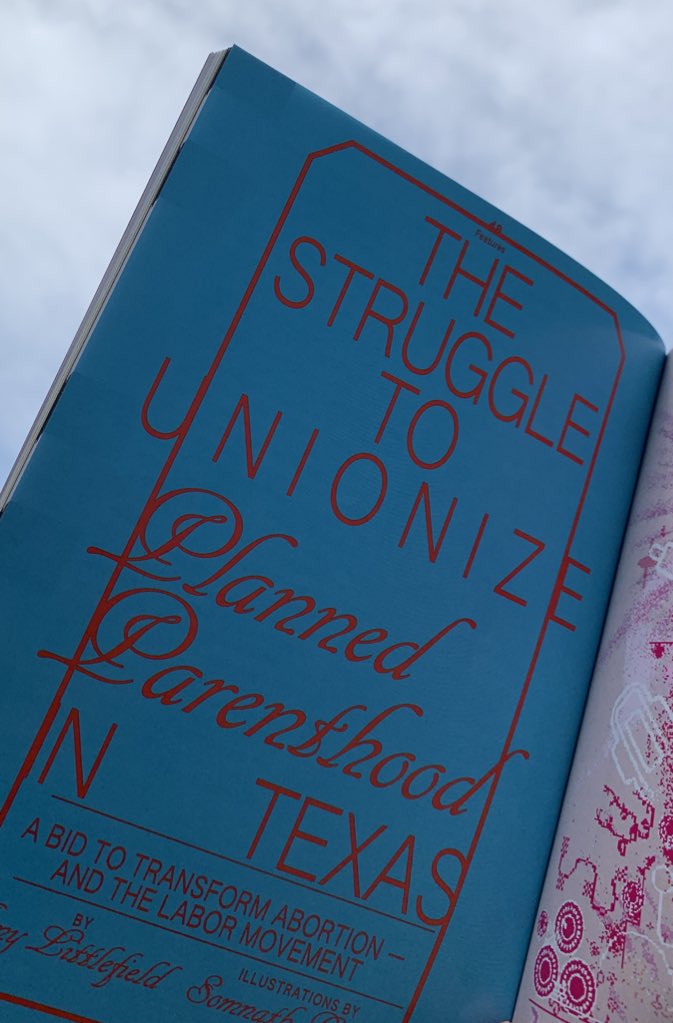 48
Features
THE
STRUGGLE
TO
UNIONIZE
Planned
Parenthood
IN TEXAS
A BID TO TRANSFORM ABORTION —
AND THE LABOR MOVEMENT
BY
Littlefield
ILLUSTRATIONS BY
Somnath